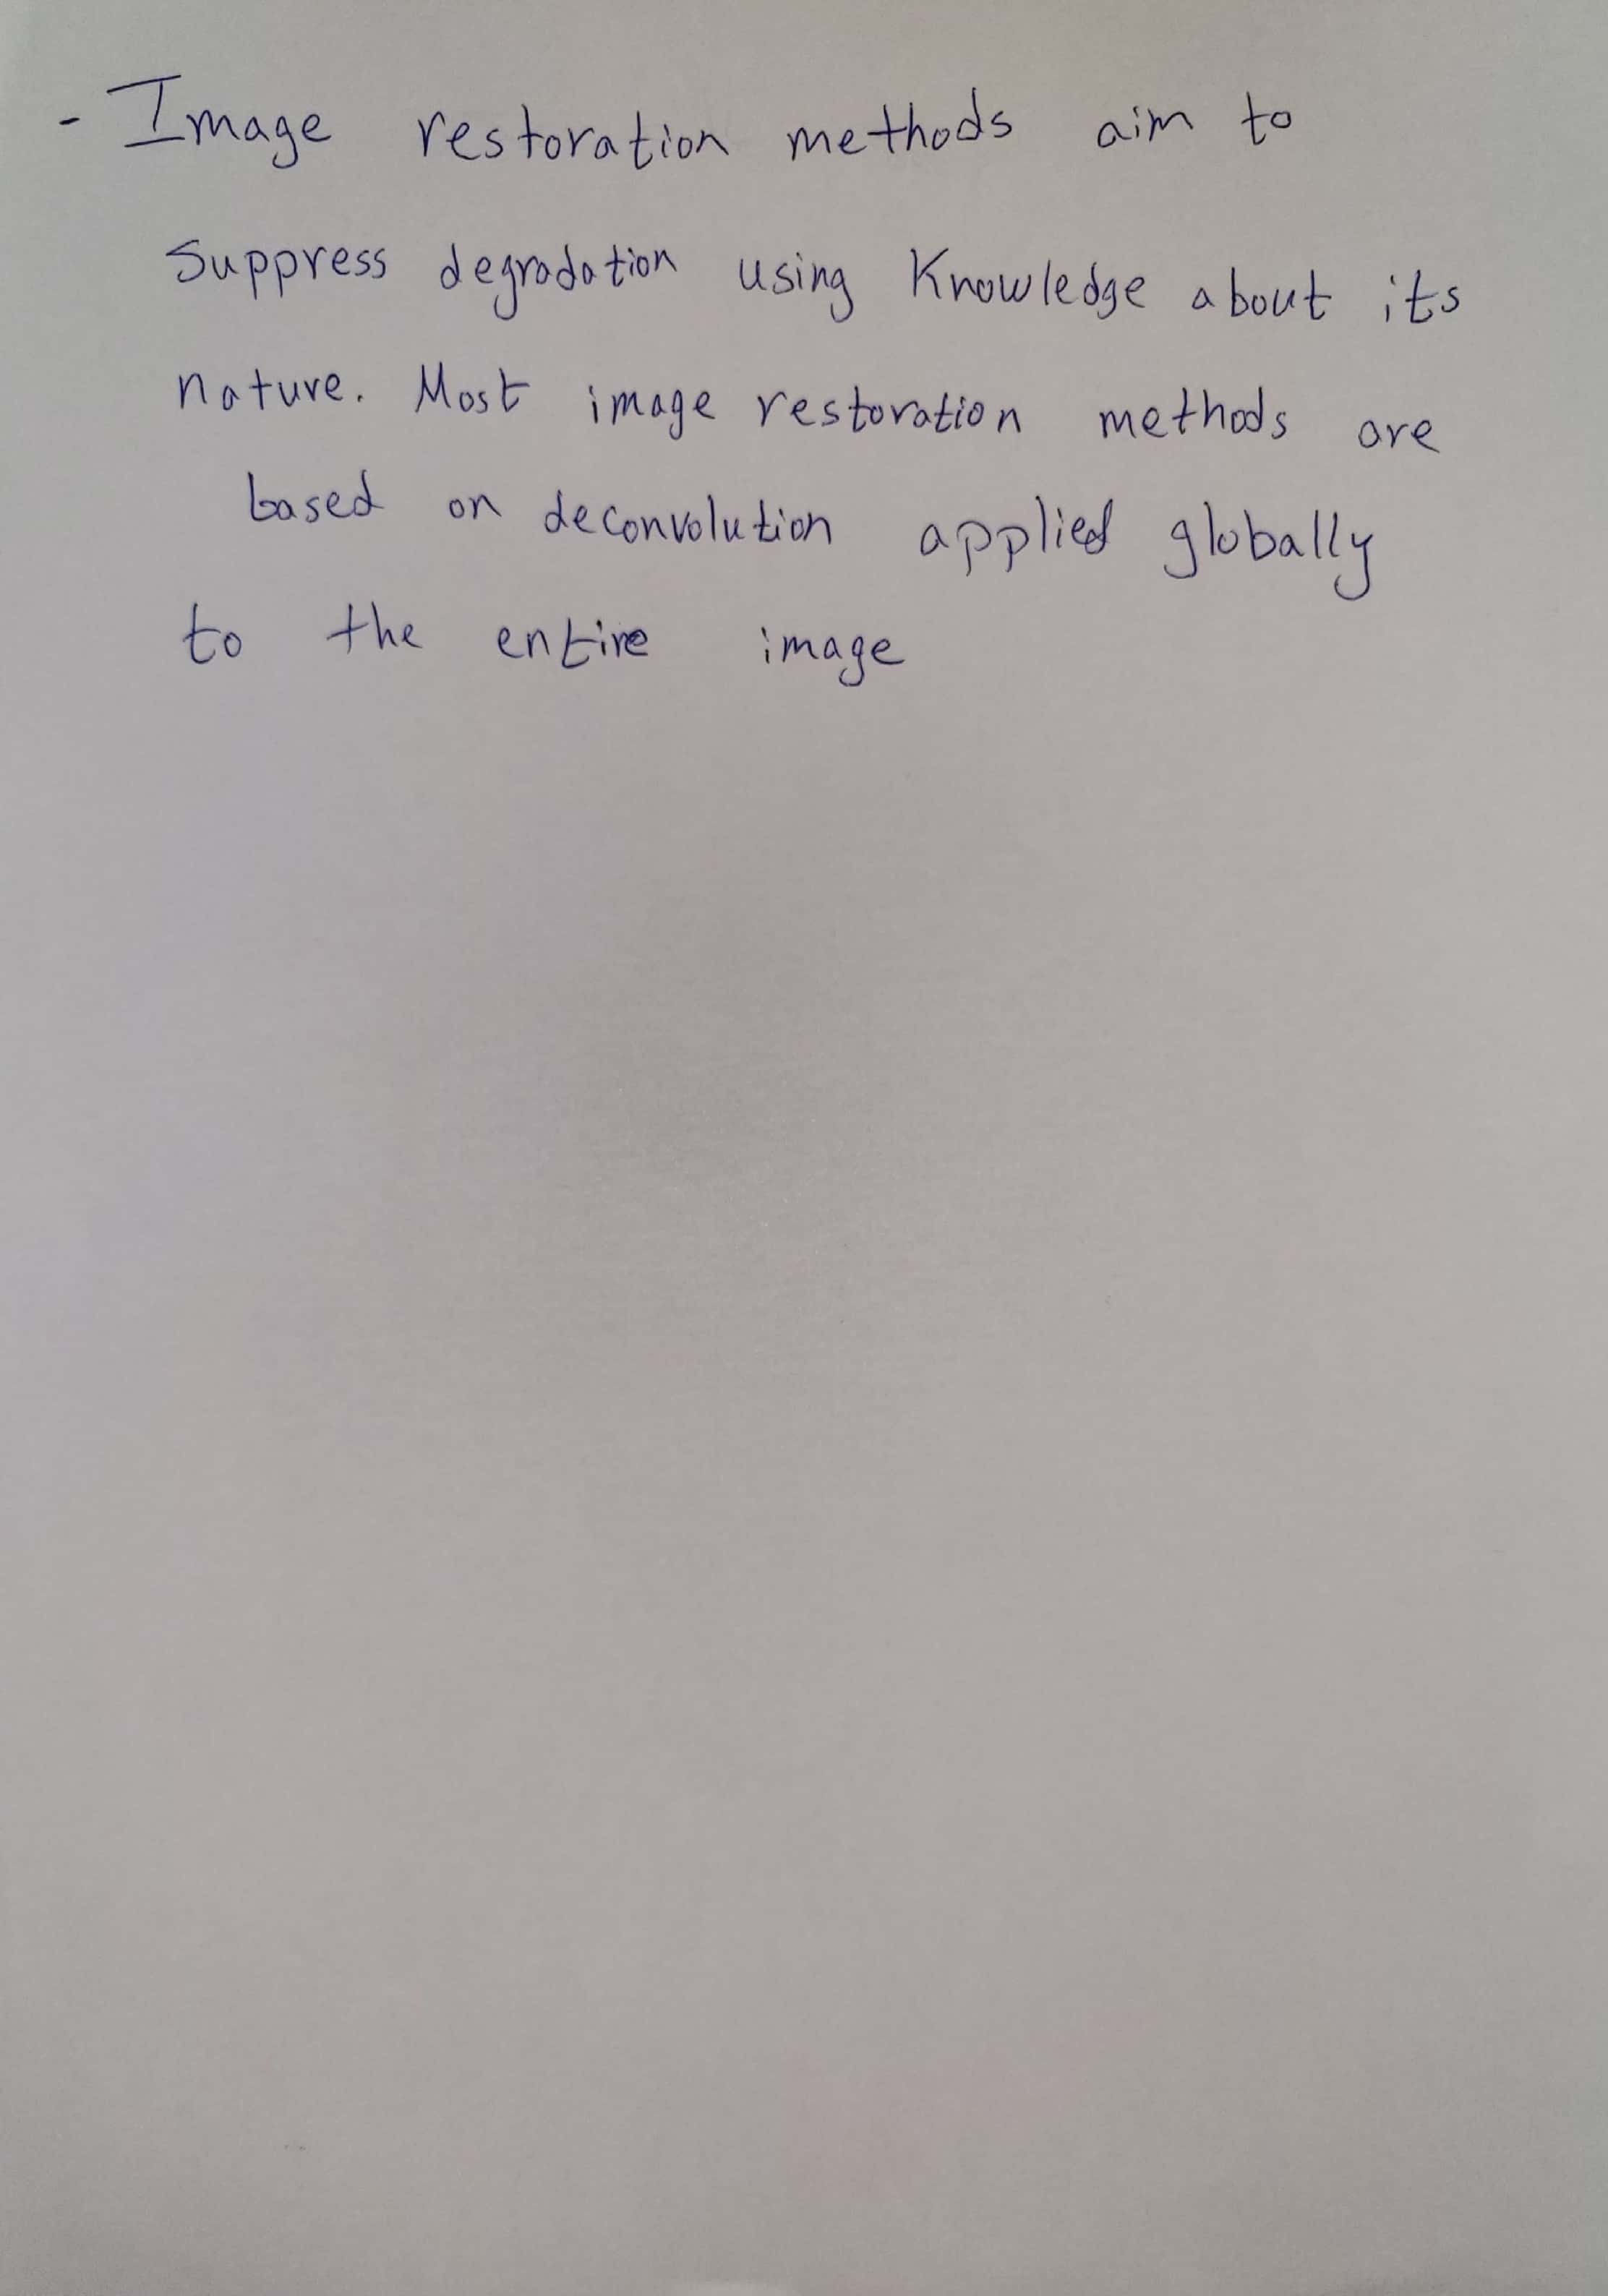 - Image restoration methods aim to
suppress degradation using Knowledge about its
nature. Most image restoration methods are
based on deconvolution applied globally
to the entire image